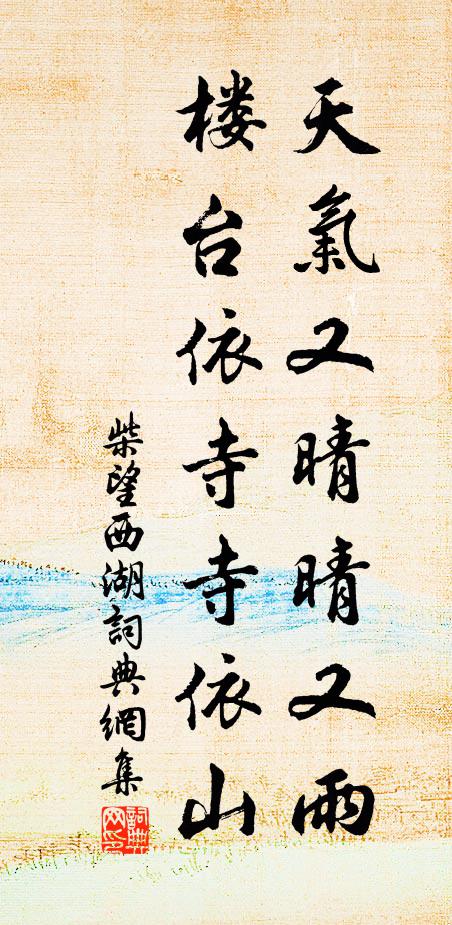 天氣又晴晴又雨
楼台依寺寺依山
柴望西湖詞典網集
詞典网印